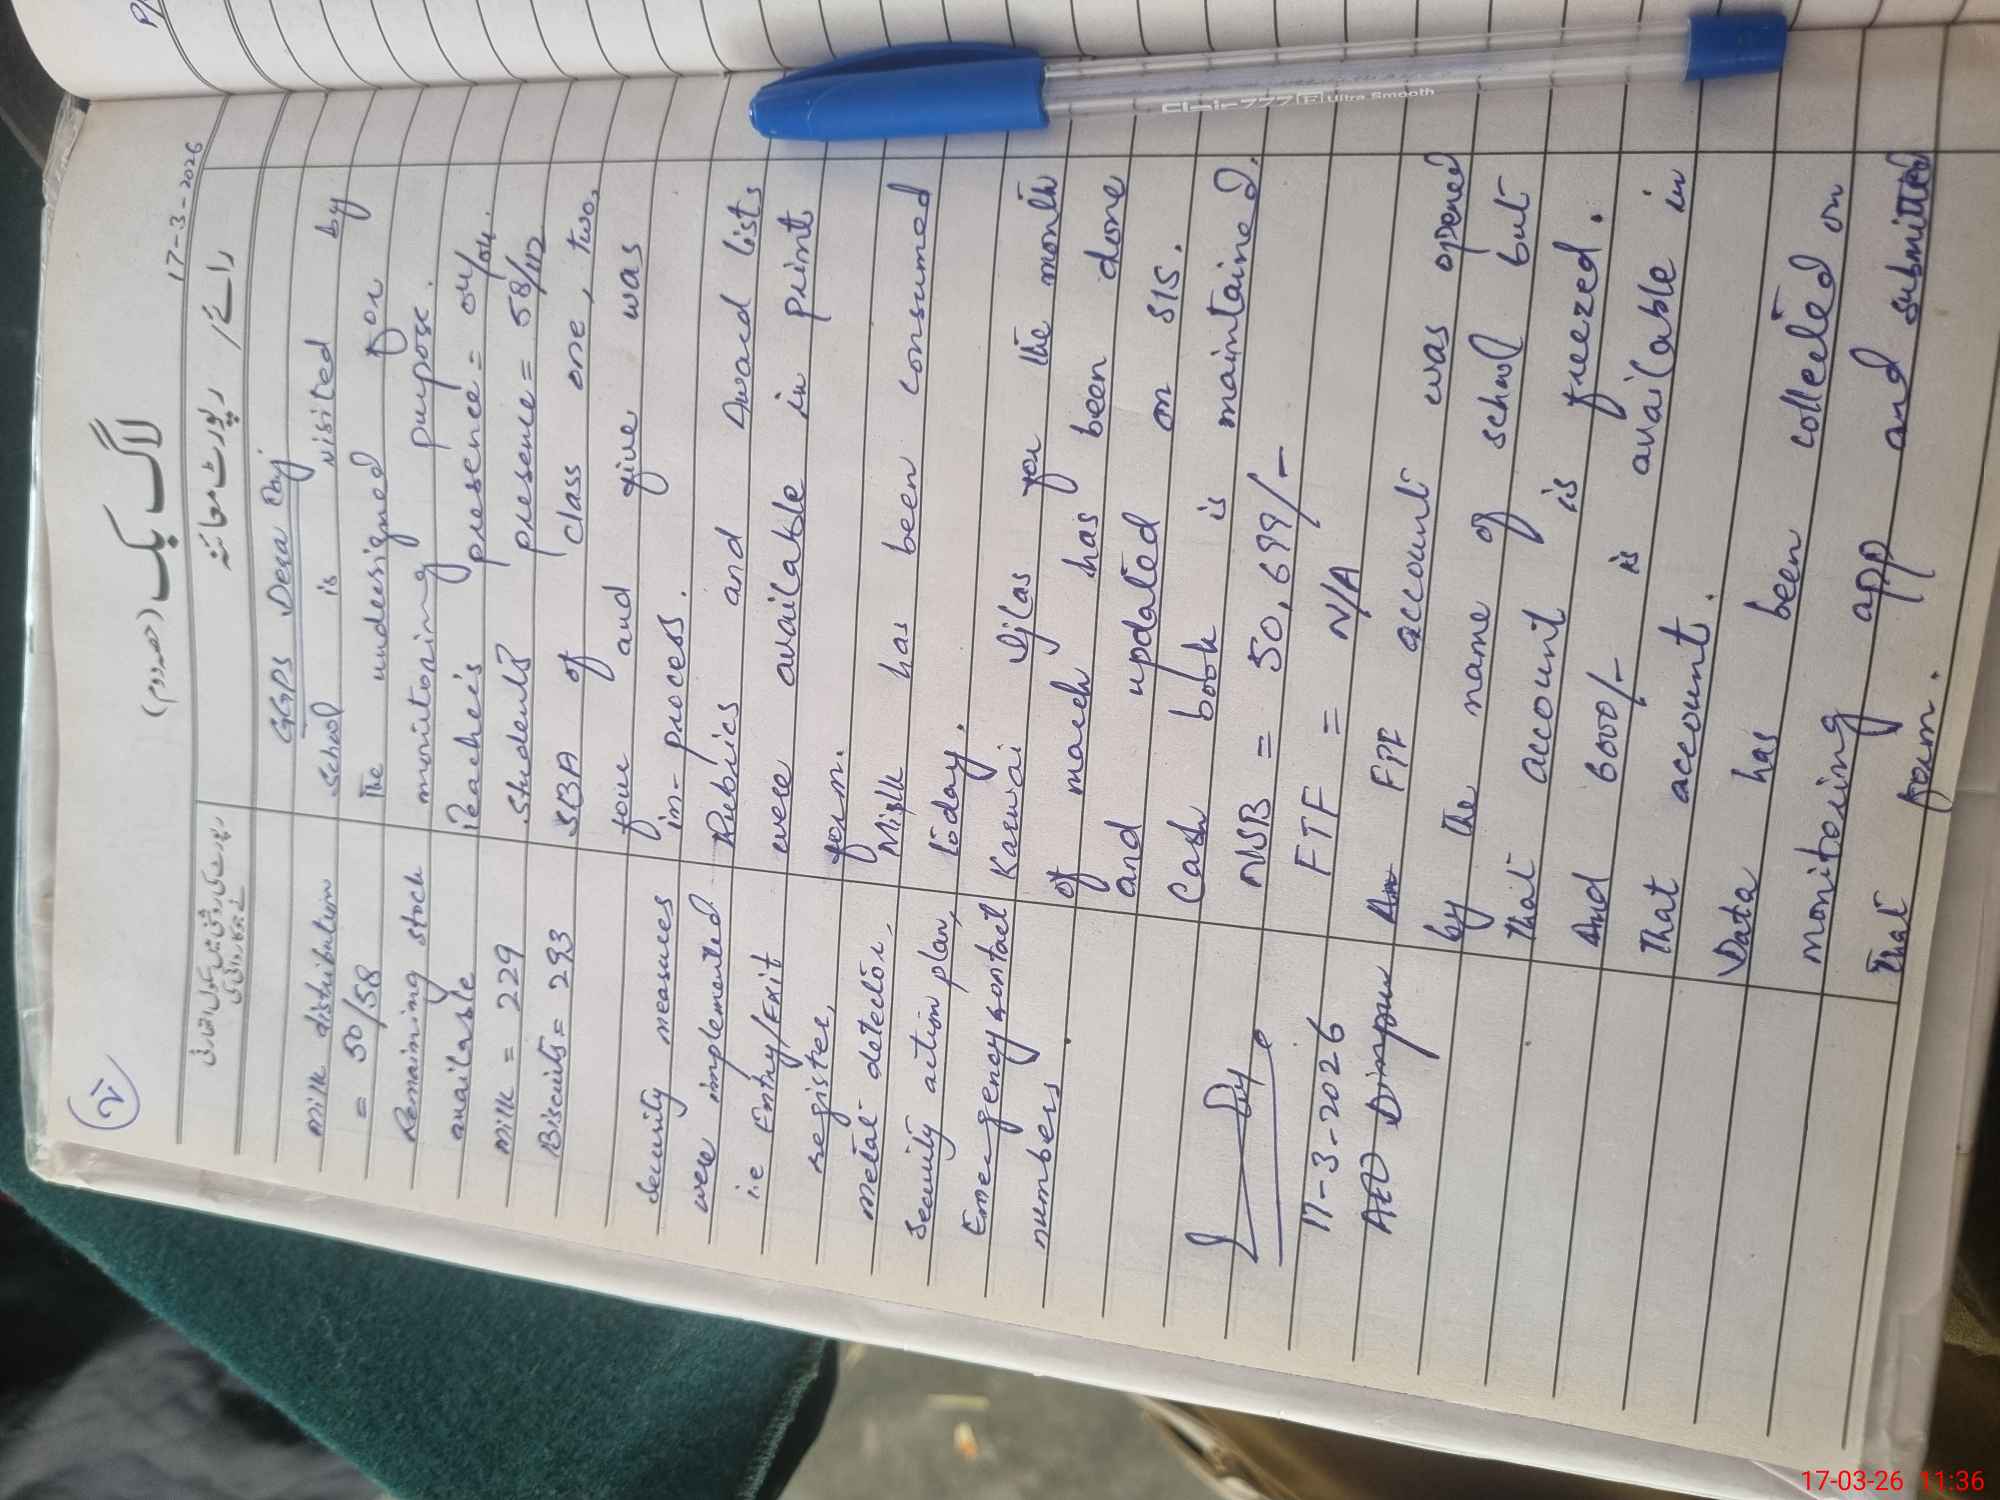 لاگ بک (حصہ دوم)
17-3-2026
رائے / رپورٹ معائنہ
GGPS Dera Paj
School is visited by
The undersigned for
monitoring purpose.
Teachers presence = 04/04.
Students presence = 58/112
SBA of class one, two,
four and five was
in-process.
Rubrics and Award lists
were available in print
form.
Milk has been consumed
today.
Karwai Ijlas for the month
of march has been done
and updated on SIS.
Cash book is maintained.
NSB = 50,699/-
FTF = N/A
An FTF account was opened
by the name of school but
That account is freezed.
And 6000/- is available in
That account.
Data has been collected on
monitoring app and submitted
That form.
milk distribution
= 50/58
Remaining stock
available
milk = 229
Biscuits = 293
Security measures
were implemented
i.e Entry/Exit
register,
metal detector,
Security action plan,
Emergency contact
numbers
17-3-2026
AEO
Clair 777 F Ultra Smooth
17-03-26 11:36